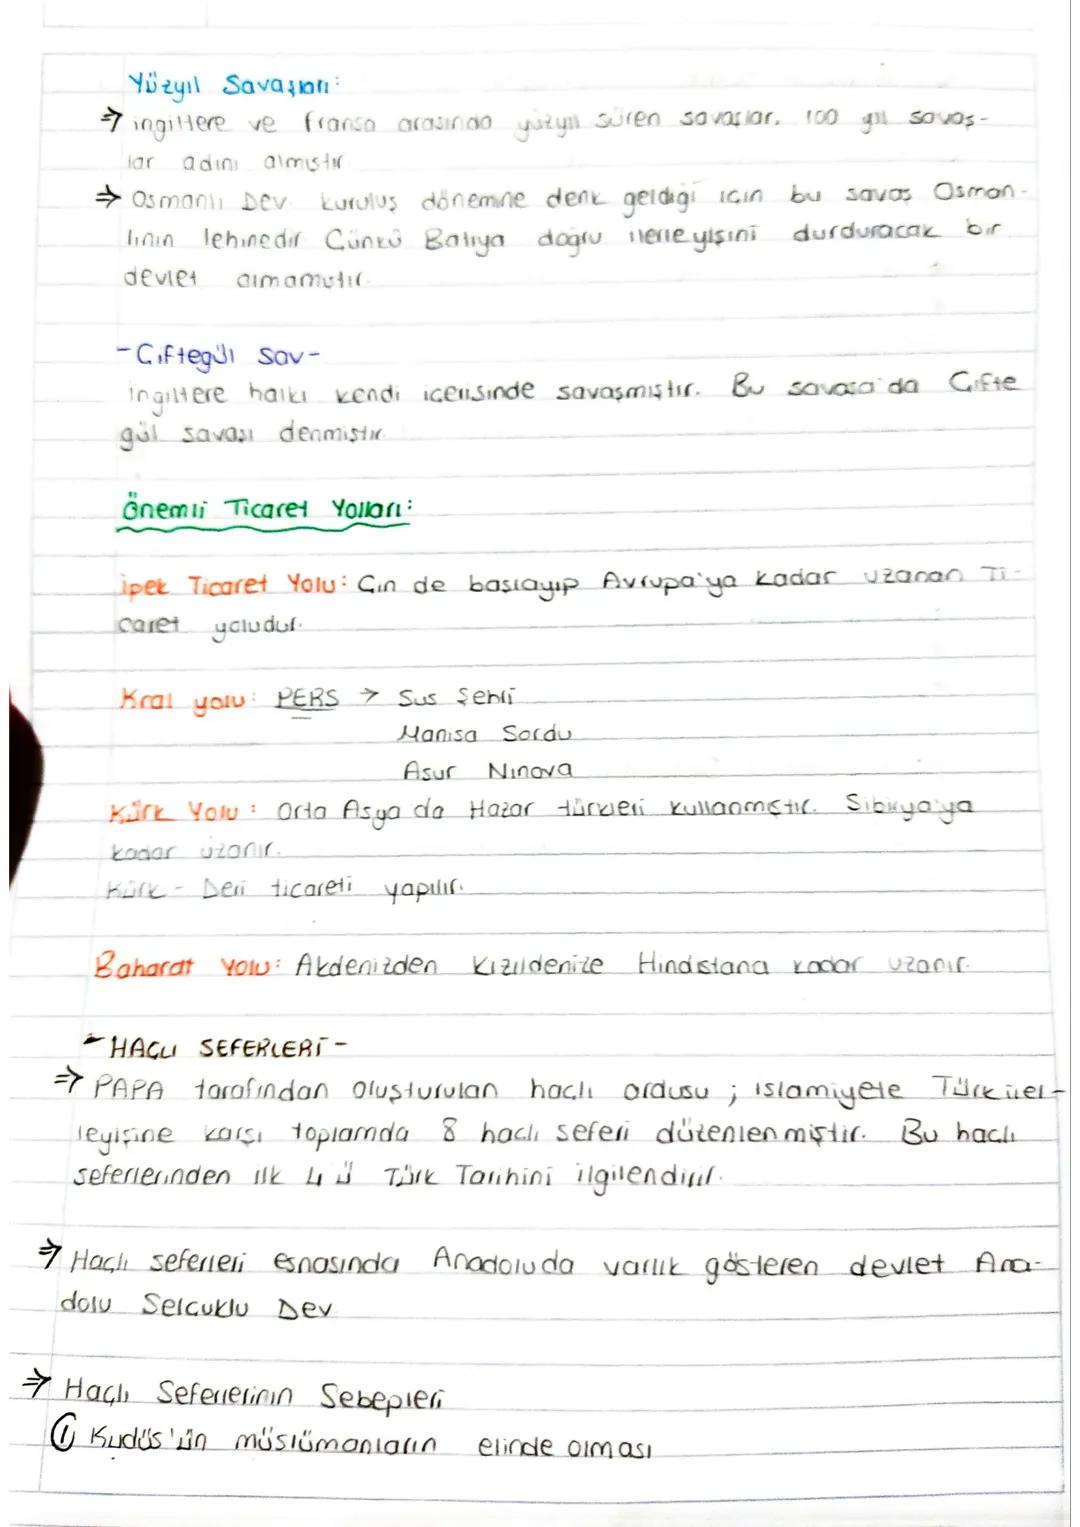 Yüzyıl Savaşları:
⇒ ingiltere ve fransa arasında yüzyıl süren savaşlar. 100 yıl savaş-
lar adını almıştır
⇒ Osmanlı Dev. kuruluş dönemine denk geldiği için bu savaş Osman-
lının lehinedir Çünkü Batıya doğru ilerleyişini durduracak bir
devlet olmamıştır.
- Çiftegül Sav -
ingiltere halkı kendi içerisinde savaşmıştır. Bu savaşa'da Çifte
gül savaşı denmiştir.
Önemli Ticaret Yolları:
ipek Ticaret Yolu: Çin de başlayıp Avrupa'ya kadar uzanan Ti-
caret yoludur.
Kral yolu: PERS → Sus Şehri
Manisa Sardu
Asur Ninova
Kürk Yolu: Orta Asya da Hazar türkleri kullanmıştır. Sibirya'ya
kadar uzanır.
Kürk - Deri ticareti yapılır.
Baharat Yolu: Akdenizden Kızıldenize Hindistana kadar uzanır.
- HAÇLI SEFERLERİ -
⇒ PAPA tarafından oluşturulan haçlı ordusu ; islamiyete Türk iler-
leyişine karşı toplamda 8 haçlı seferi düzenlenmiştir. Bu haçlı
seferlerinden ilk 4 ü Türk Tarihini ilgilendirir.
⇒ Haçlı seferleri esnasında Anadoluda varlık gösteren devlet Ana-
dolu Selçuklu Dev
⇒ Haçlı Seferlerinin Sebepleri
① Kudüs'ün müslümanların elinde olması